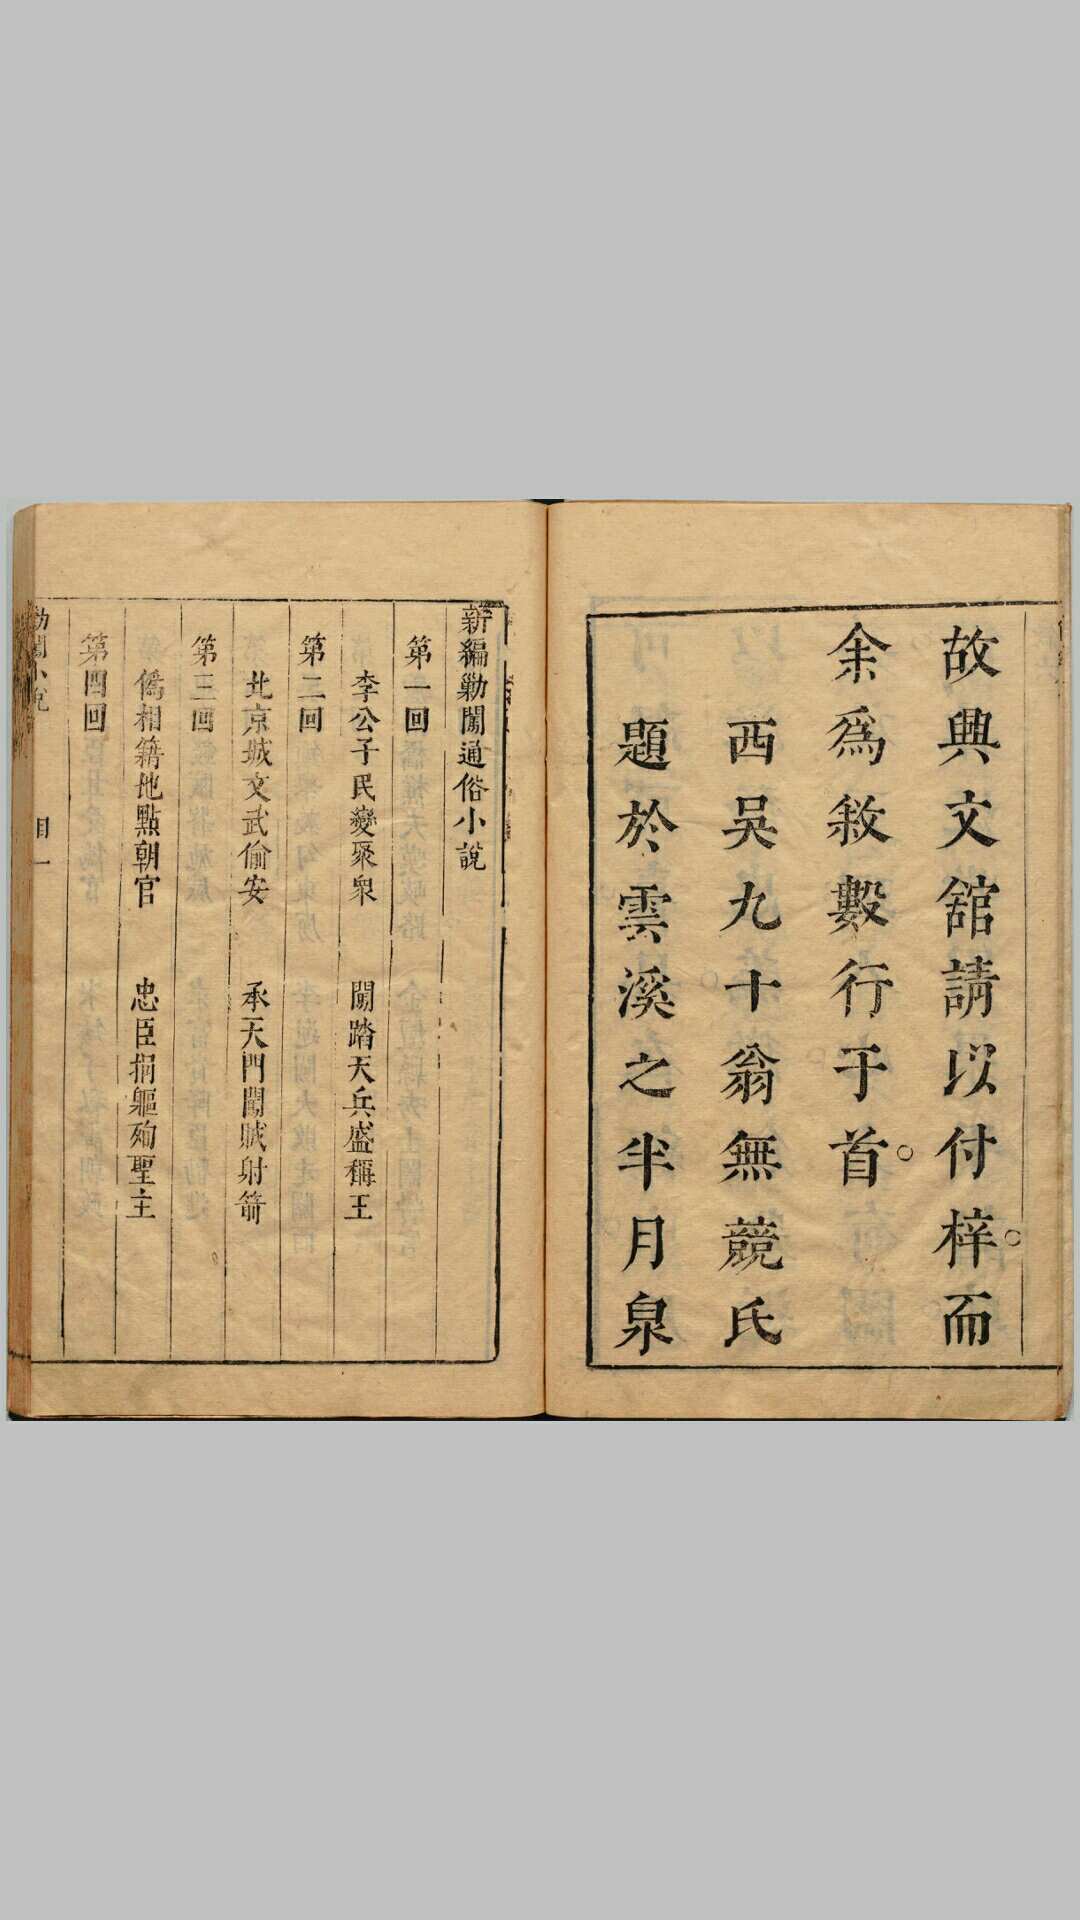 故興文舘請以付梓而
余爲敘數行于首
西吴九十翁無競氏
題於雲溪之半月泉
新編勦闖通俗小說
第一回
李公子民變聚衆　闖踏天兵盛稱王
第二回
北京城文武偷安　承天門闖賊射箭
第三回
僞相籍地點朝官　忠臣捐軀殉聖主
第四回